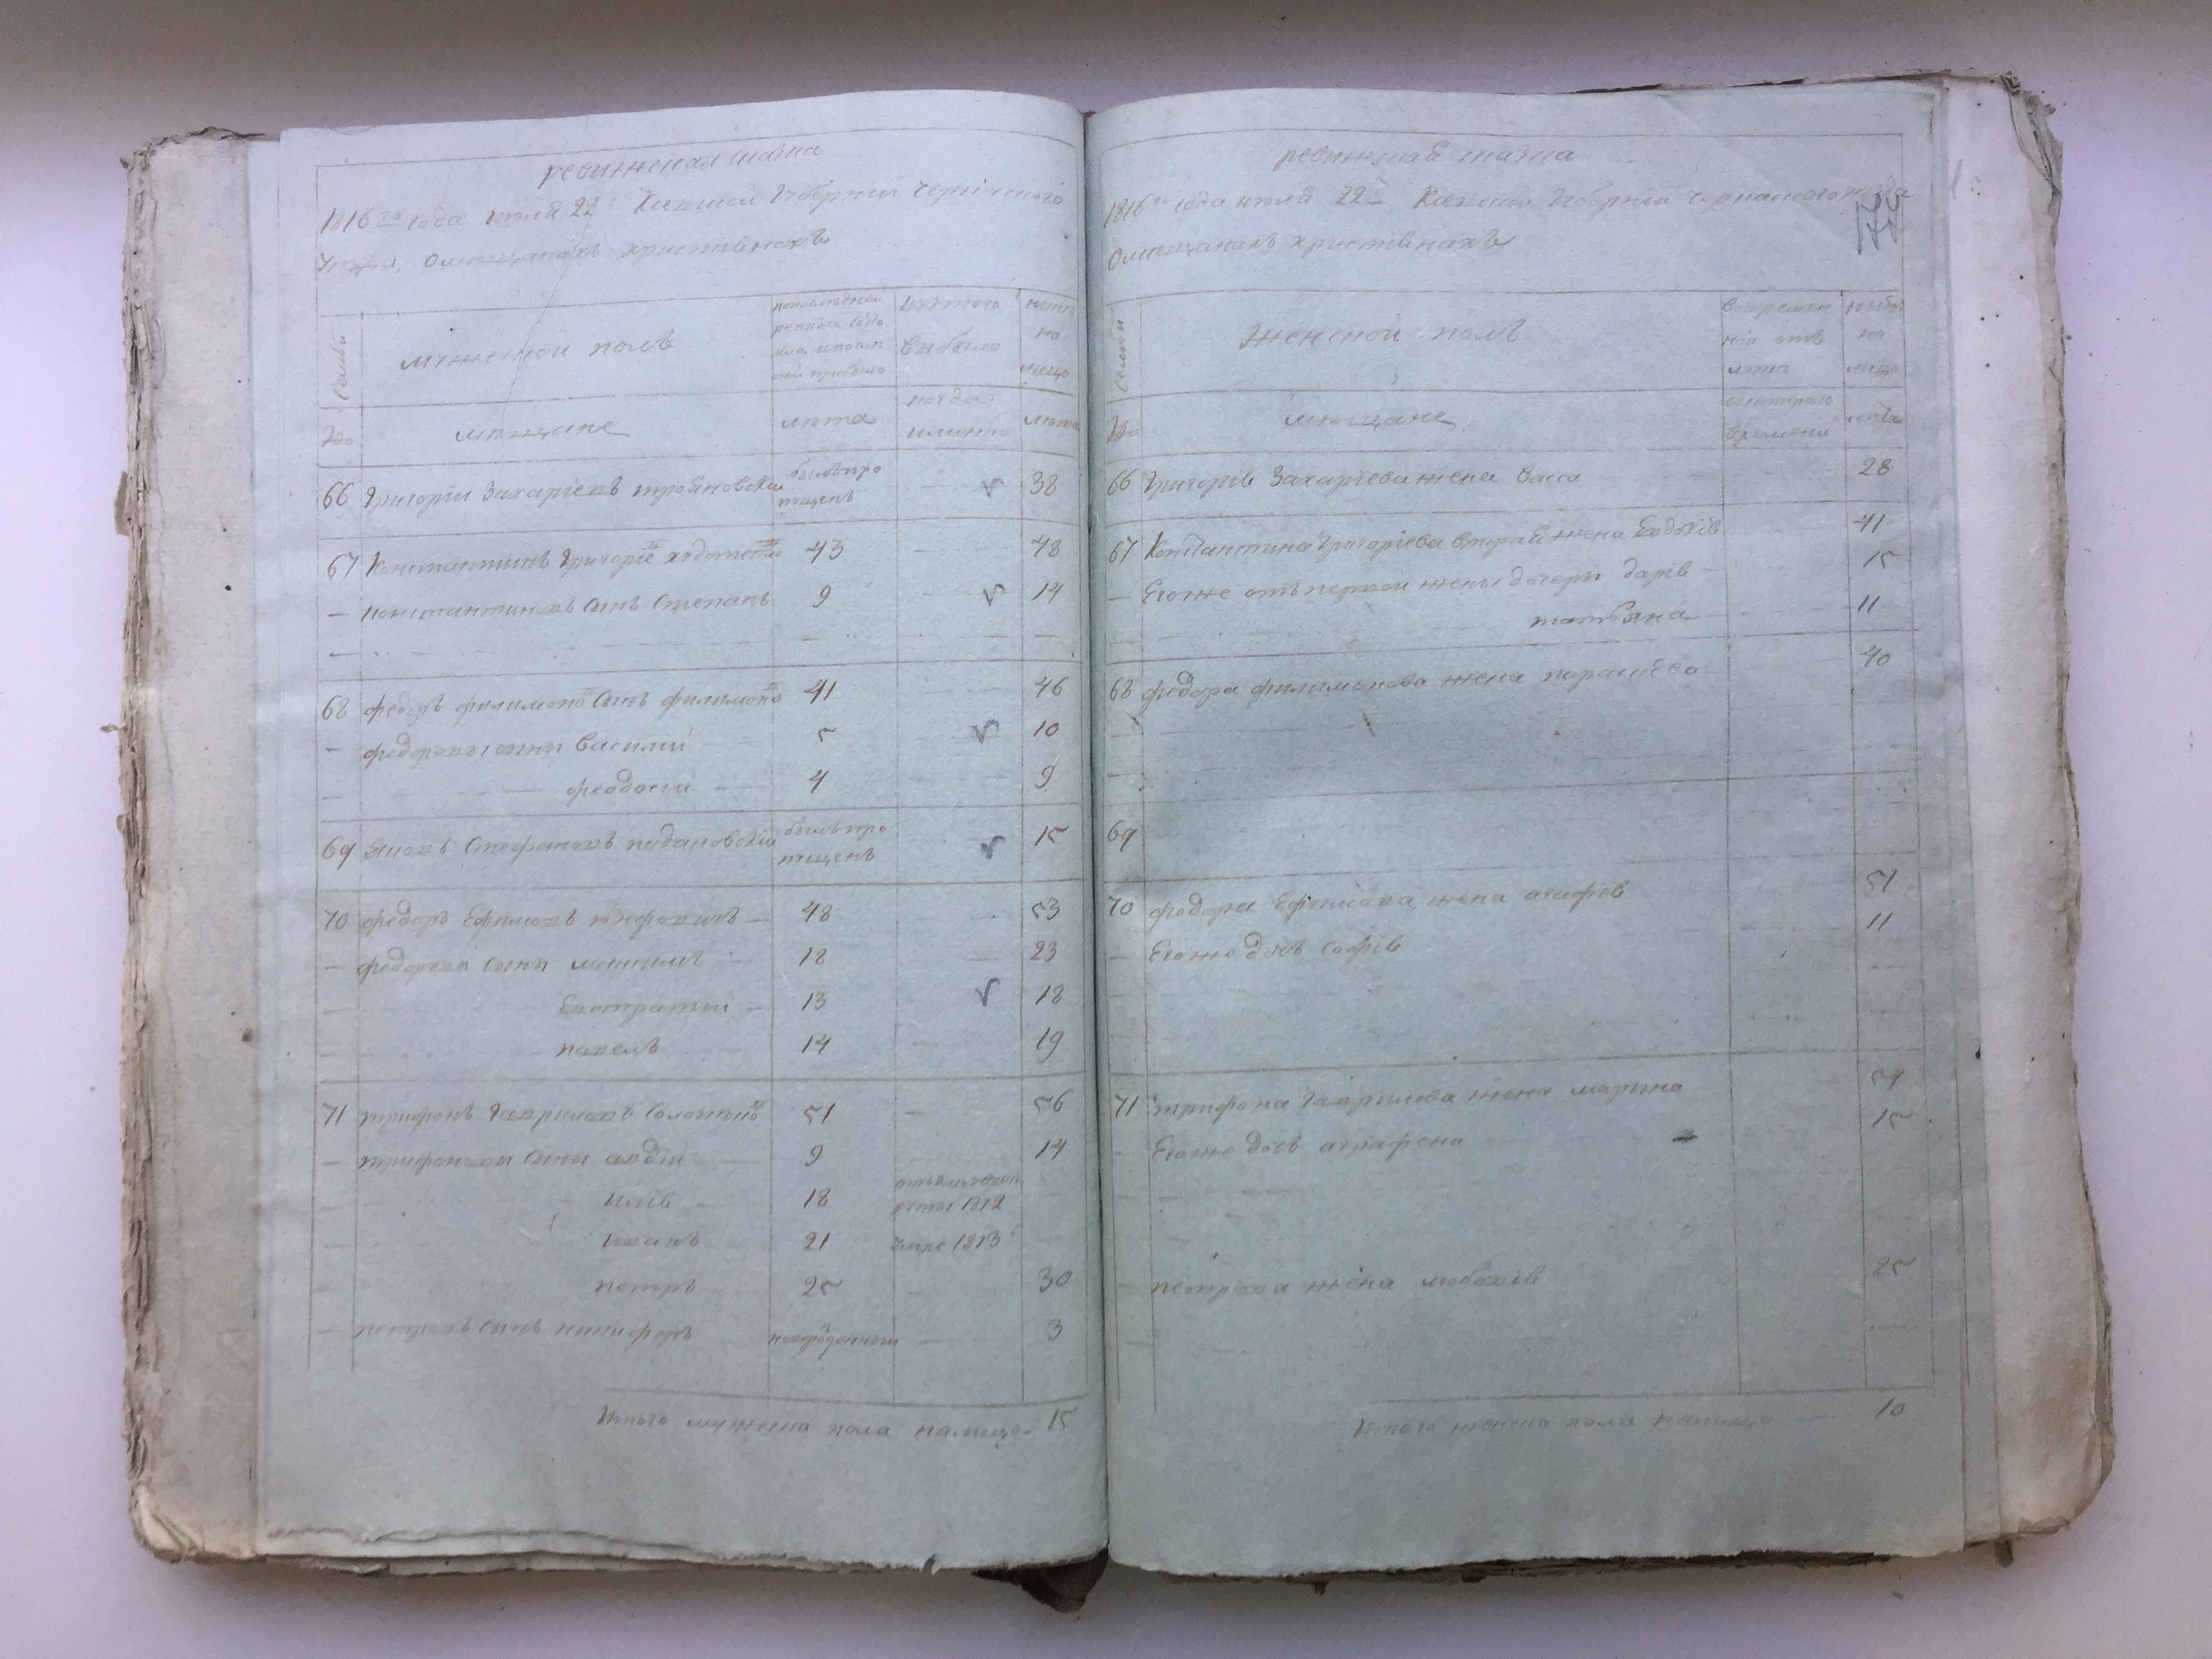 ревижская сказка
1816го года июля 22 Киевской Губернии Черкаского
Уезда, Омещанахъ христiянахъ
Семьи
мужеской полъ
попоследней
ревизiи состо
яло, ипосле
оной прибыло
изтого
выбыло
ныне
на
лицо
№
мещане
лета
когда
имянно
лета
66 Григории Захарiевъ трояновскiи былъ про 38
пущенъ
67 Константинъ Григорiевъ 43 — 48
— константиновъ сынъ Степанъ 9 14
68 федоръ филимоновъ сынъ филимоновъ 41 46
— федоровы сыны василии 5 10
феодосiи 4 9
69 Яковъ Стефановъ былъ про 15
пущенъ
70 федоръ Ефимовъ 48 53
— федоровы сыны максимъ 18 23
Евстратии 13 18
павелъ 14 19
71 трифонъ Гавриловъ 51 — 56
— трифоновы сыны авдiи 9 14
илiя 18
1812
иванъ 21 умре 1813
петръ 25 30
— петровъ сынъ никифоръ новорожденный — 3
Итого мужеска пола налицо 15
ревижская сказка
1816го года июля 22 Киевской Губернии Черкаского уезда
Омещанахъ христiянахъ
Семьи
Женской полъ
вовремен
ной отъ
лучке
ныне
на
лицо
№
мещане
скотораго
времени
лета
66 Григорiя Захарiева жена васса 28
67 Константина Григорiева вторая жена Евдокiя 41
— Егоже отъ первой жены дочери дарiя 15
татьяна 11
68 федора филимонова жена параскева 40
69
70 федора Ефимова жена агафiя 51
— Егоже дочь софiя 11
71 трифона Гаврилова жена марина 54
Егоже дочь аграфена 15
петрова жена 25
Итого женска пола налицо 10